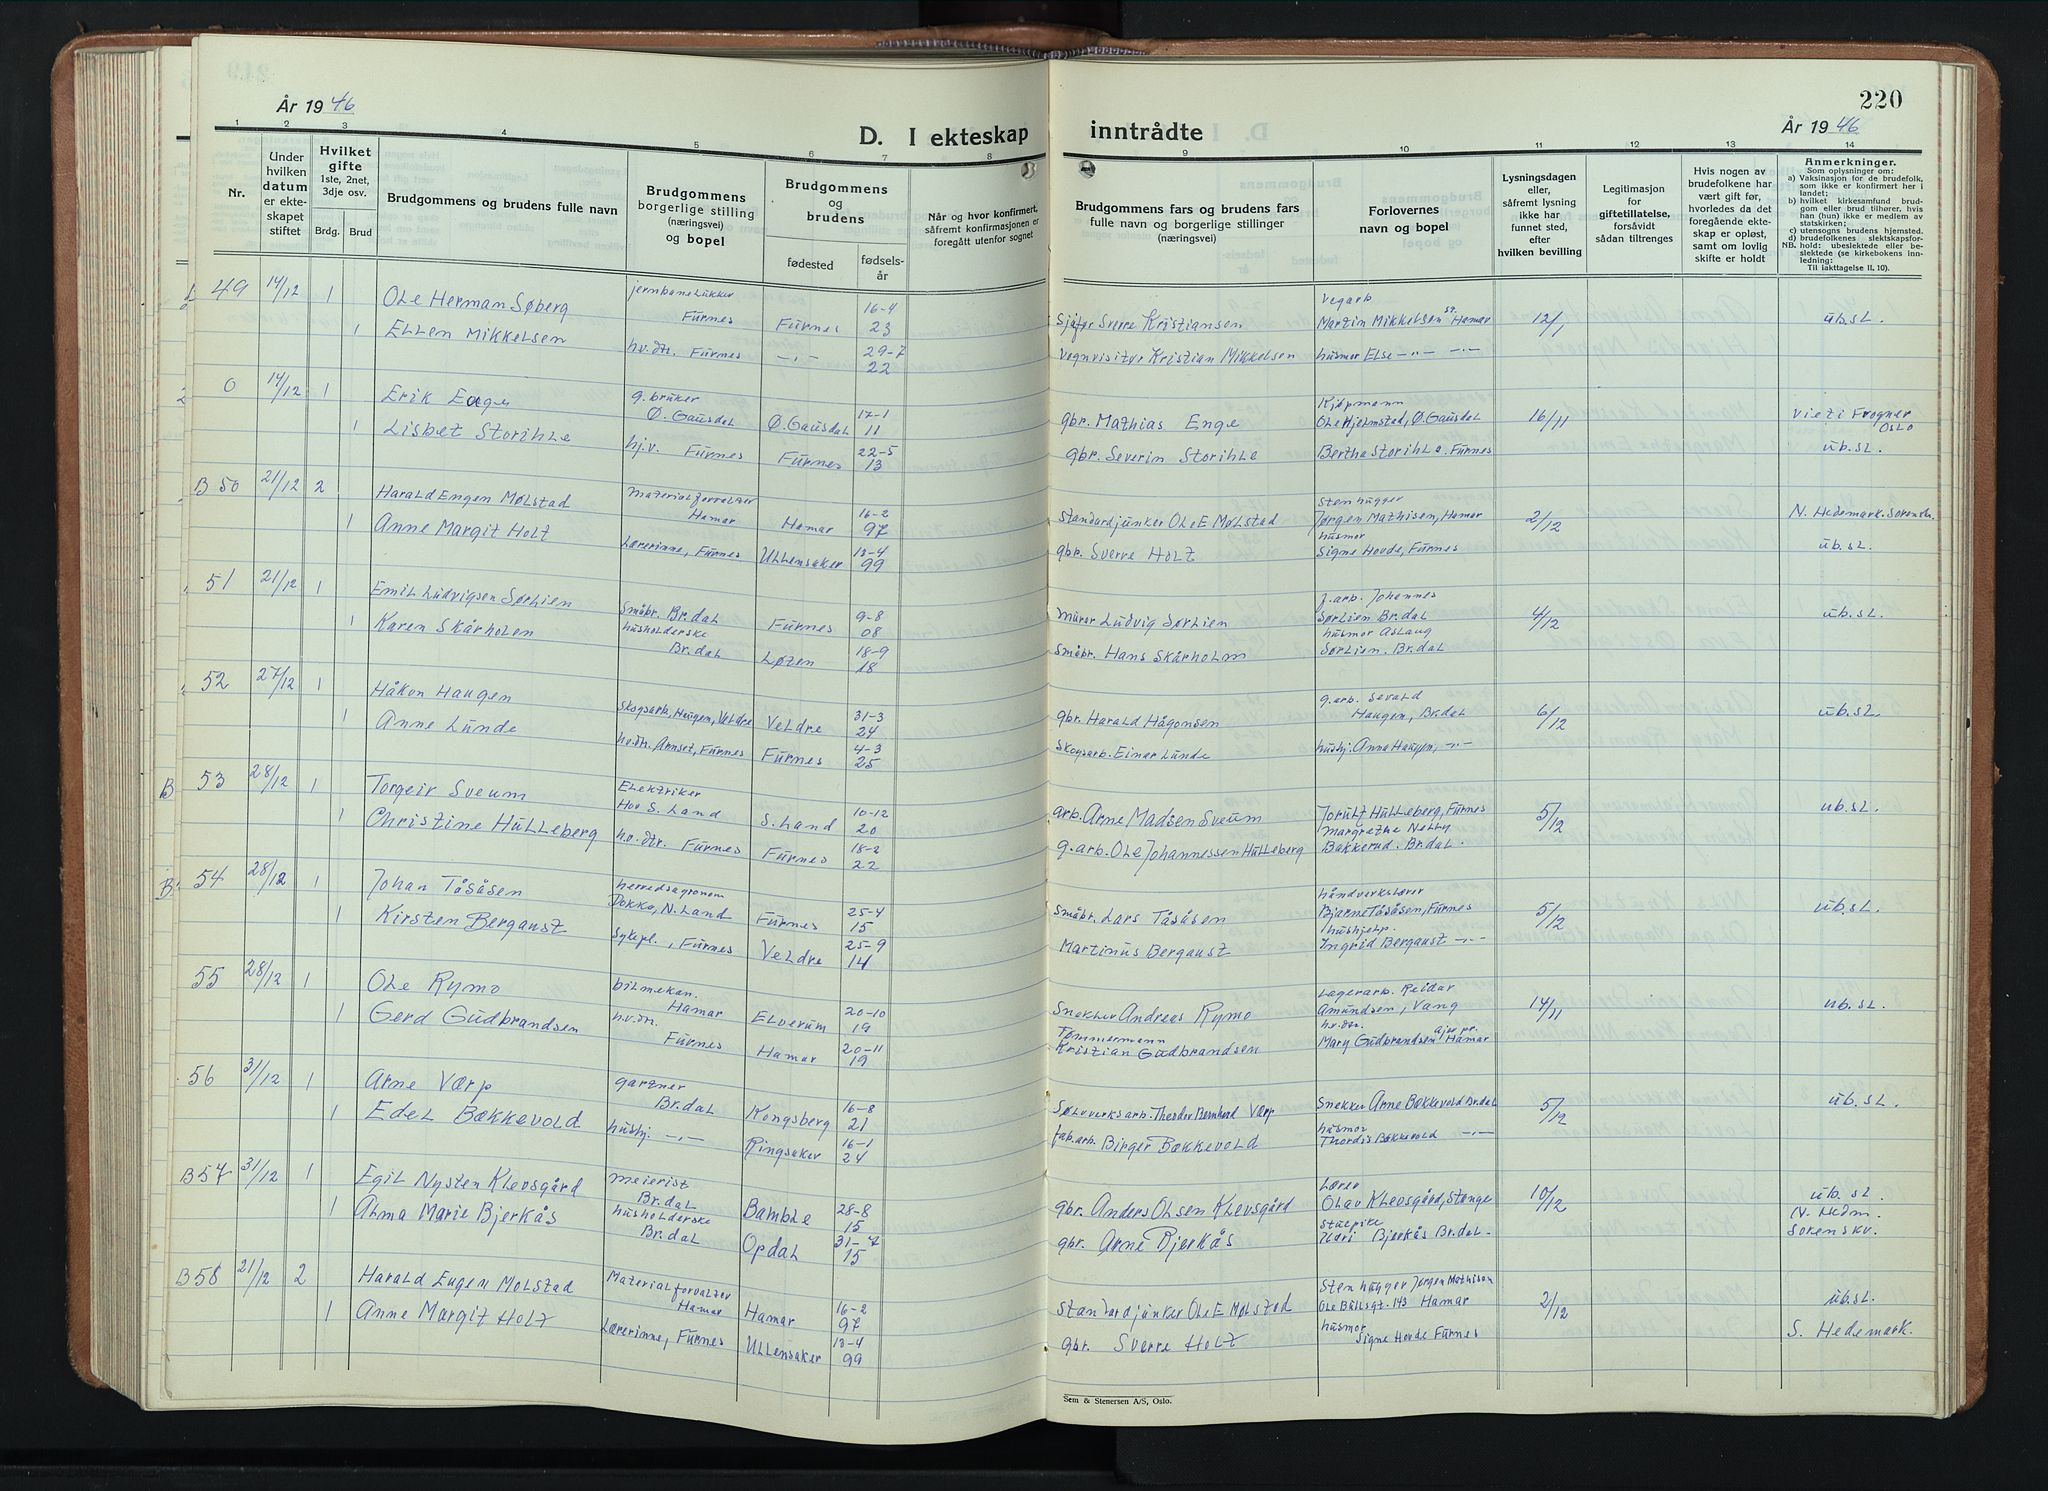 År 1946
D. I ekteskap
1 2 3 4 5 6 7 8
Nr.
Under hvilken datum er ekteskapet stiftet
Hvilket gifte 1ste, 2net, 3dje osv.
Brdg. Brud
Brudgommens og brudens fulle navn
Brudgommens borgerlige stilling (næringsvei) og bopel
Brudgommens og brudens
fødested fødselsår
Når og hvor konfirmert, såfremt konfirmasjonen er foregått utenfor sognet
49 14/12 1 Ole Herman Søberg jernbanelukker Furnes Furnes 16-4 23
1 Ellen Mikkelsen hv.dtr. Furnes -,,- 29-7 22
0 14/12 1 Erik Enge g.bruker Ø. Gausdal Ø. Gausdal 17-1 11
1 Lisbet Storihle hj.v. Furnes Furnes 22-5 13
B 50 21/12 2 Harald Engen Mølstad materialforvalter Hamar Hamar 16-2 97
1 Anne Margit Holt Lærerinne, Furnes Ullensaker 13-4 99
51 21/12 1 Emil Ludvigsen Sørlien Småbr. Br.dal Furnes 9-8 08
1 Karen Skårholen husholderske Br.dal Løten 18-9 18
52 27/12 1 Håkon Haugen Skogsarb, Haugen, Veldre Veldre 31-3 24
1 Anne Lunde hv.dtr. Arnset, Furnes Furnes 4-3 25
B 53 28/12 1 Torgeir Sveum Elektriker Hov S. Land S. Land 10-12 20
1 Christine Hulleberg hv.dtr. Furnes Furnes 18-2 22
B 54 28/12 1 Johan Tåsåsen herredsagronom Dokka, N. Land Furnes 25-4 15
1 Kirsten Bergaust Sykepl., Furnes Veldre 25-9 14
55 28/12 1 Ole Rymo bilmekan. Hamar Elverum 20-10 19
1 Gerd Gudbrandsen h.v.dtr. Furnes Hamar 20-11 19
56 31/12 1 Arne Værp gartner Br.dal Kongsberg 16-8 21
1 Edel Bækkevold hushj. -,,- Ringsaker 16-1 24
B 57 31/12 1 Egil Nysten Klevsgård meierist Br.dal Bamble 28-8 15
1 Alma Marie Bjerkås husholderske Br.dal Opdal 31-7 15
B 58 21/12 2 Harald Eugen Molstad Materialforvalter Hamar Hamar 16-2 97
1 Anne Margit Holt Lærerinne, Furnes Ullensaker 13-4 99
220
inntrådte
År 1946
9 10 11 12 13 14
Brudgommens fars og brudens fars fulle navn og borgerlige stillinger (næringsvei)
Forlovernes navn og bopel
Lysningsdagen eller, såfremt lysning ikke har funnet sted, efter hvilken bevilling
Legitimasjon for giftetillatelse, forsåvidt sådan tiltrenges
Hvis nogen av brudefolkene har vært gift før, hvorledes da det foregående ekteskap er opløst, samt om lovlig skifte er holdt
Anmerkninger.
Som oplysninger om:
a) Vaksinasjon for de brudefolk, som ikke er konfirmert her i landet;
b) hvilket kirkesamfund brudgom eller brud tilhører, hvis han (hun) ikke er medlem av statskirken;
c) utensogns brudens hjemsted.
d) brudefolkenes slektskapsforhold: ubeslektede eller beslektede (se kirkebokens innledning: Til iakttagelse II. 10).
NB.
Sjåfør Sverre Kristiansen Vegarb Martin Mikkelsen Hamar 12/1 ub.sl.
Vognvisitør Kristian Mikkelsen husmor Else -,,- -,,-
gbr. Mathias Enge Kjøpmann Ole Hjelmstad, Ø. Gausdal 16/11 Viet i Frogner Oslo
gbr. Severin Storihle Bertha Storihle. Furnes ub.sl.
Standardjunker Ole E Mølstad Stenhugger Jørgen Mathisen, Hamar 2/12 N. Hedemark. Sorensk.
gbr. Sverre Holt husmor Signe Hovde, Furnes ub.sl.
Murer Ludvig Sørlien J.arb. Johannes Sørlien Br.dal 4/12 ub.sl.
Småbr. Hans Skårholm husmor Aslaug Sørlien. Br.dal
gbr. Harald Hågonsen g.arb. Sevald Haugen, Br.dal 6/12 ub.sl.
Skogsarb. Einar Lunde hushj. Anna Haugen, -,,-
arb. Arne Madsen Sveum Jorulf Hulleberg, Furnes 5/12 ub.sl.
g.arb. Ole Johannessen Hulleberg Margrethe Nelly Bakkerud. Br.dal.
Småbr. Lars Tåsåsen håndverkslærer Bjarne Tåsåsen, Furnes 5/12 ub.sl.
Martinus Bergaust hushjelp. Ingrid Bergaust -,,-
Snekker Andreas Rymo Lagerarb. Reidar Amundsen, Vang 14/11 ub.sl.
Tømmermann Kristian Gudbrandsen hv.dtr. Mary Gudbrandsen Ajer pr. Hamar
Sølvverksarb. Theodor Bernhard Værp Snekker Arne Bækkevold Br.dal 5/12 ub.sl.
fab.arb. Birger Bækkevold husmor Thordis Bækkevold -,,-
gbr. Anders Olsen Klevsgård Lærer Olav Klevsgård, Stange 10/12 ub.sl.
gbr. Arne Bjerkås stuepike Kari Bjerkås Br.dal. N. Hedm. Sorenskv.
Standardjunker Ole E Mølstad Stenhugger Jørgen Mathisen Ole Bullsgt. 143 Hamar 2/12 ub.sl.
gbr. Sverre Holt husmor Signe Hovde Furnes S. Hedemark.
Sem & Stenersen A/S, Oslo.